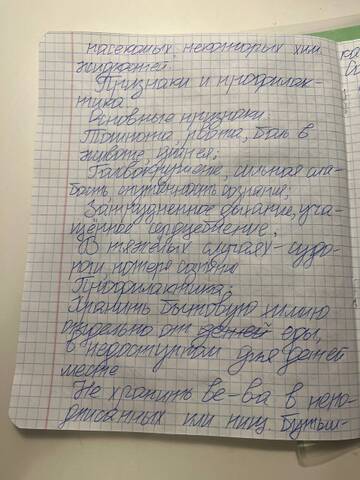 насекомых, некоторых хим.
жидкостей.
Признаки и профилак-
тика
Основные признаки:
Тошнота, рвота, боль в
животе, диарея;
Головокружение, сильная сла-
бость, спутанность сознания;
Затрудненное дыхание, уча-
щённое сердцебиение;
В тяжелых случаях - судо-
роги, потеря сознания
Профилактика:
Хранить бытовую химию
отдельно от детей еды,
в недоступном для детей
месте
Не хранить ве-ва в непо-
дписанных или пищ. бутыл-